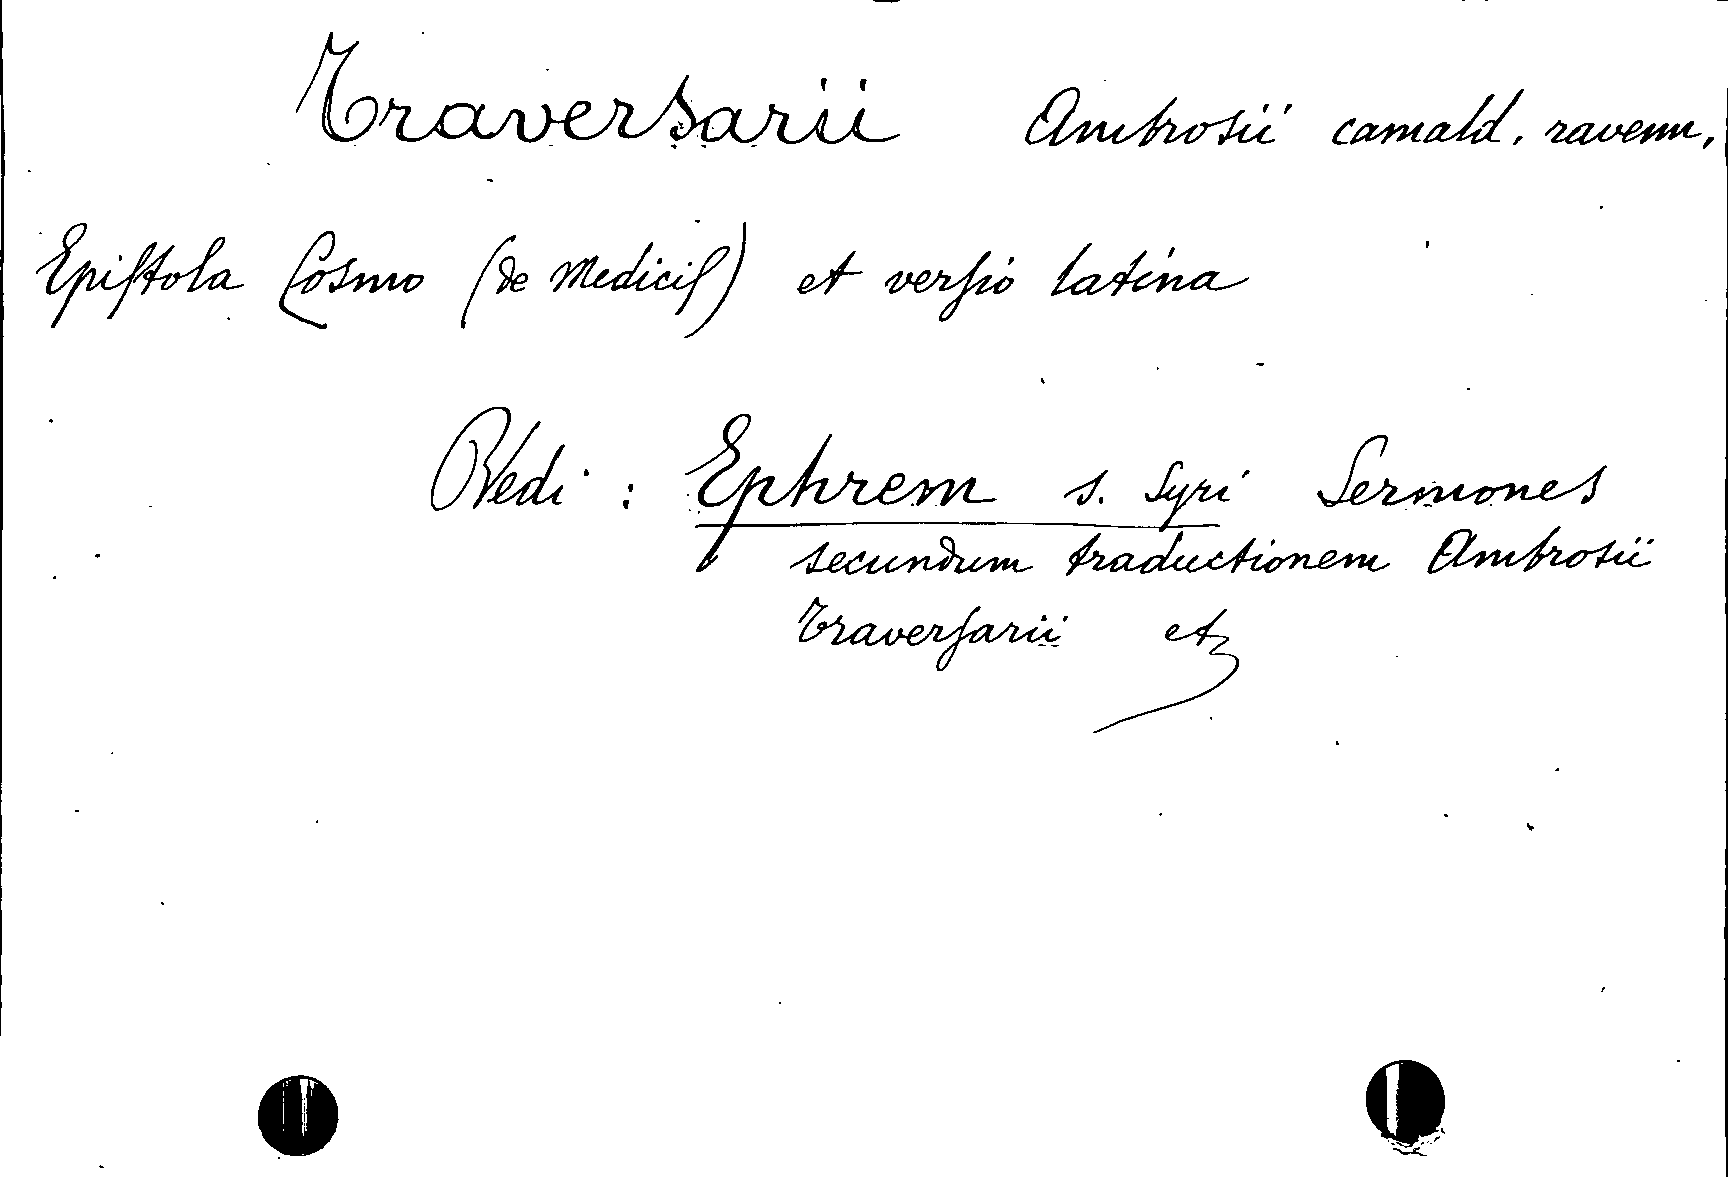 Traversarii Ambrosii camald. ravenn.
Epiſtola Cosmo (de Mediciſ) et verſio latina
Vedi : Ephrem s. Syri Sermones
secundum traductionem Ambrosii
Traverſarii etc